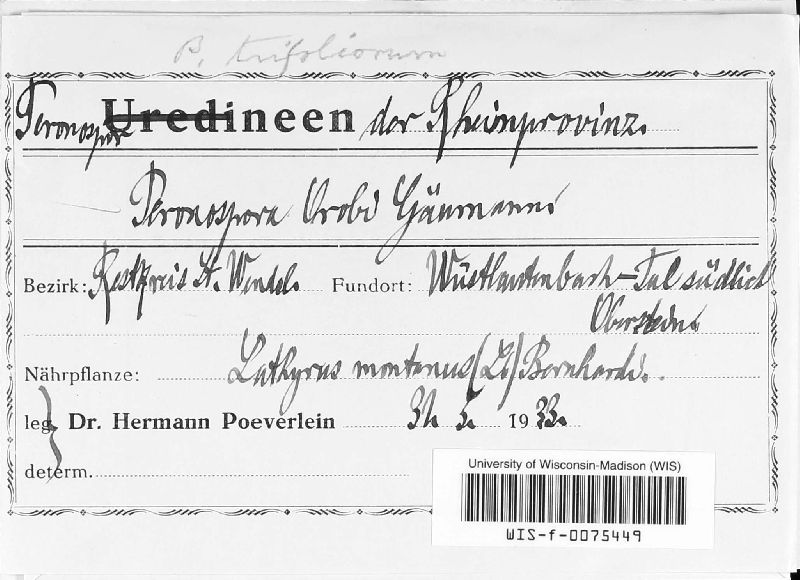 P. trifoliorum
Peronosporineen der Rheinprovinz.
Peronospora Orobi Gäumann
Bezirk: Restkreis St. Wendel. Fundort: Wüstlautenbach-Tal südlich
Nährpflanze: Lathyrus montanus (L.) Bernhardi.
leg. Dr. Hermann Poeverlein 31. 5. 1933.
determ.
University of Wisconsin-Madison (WIS)
WIS-f-0075449